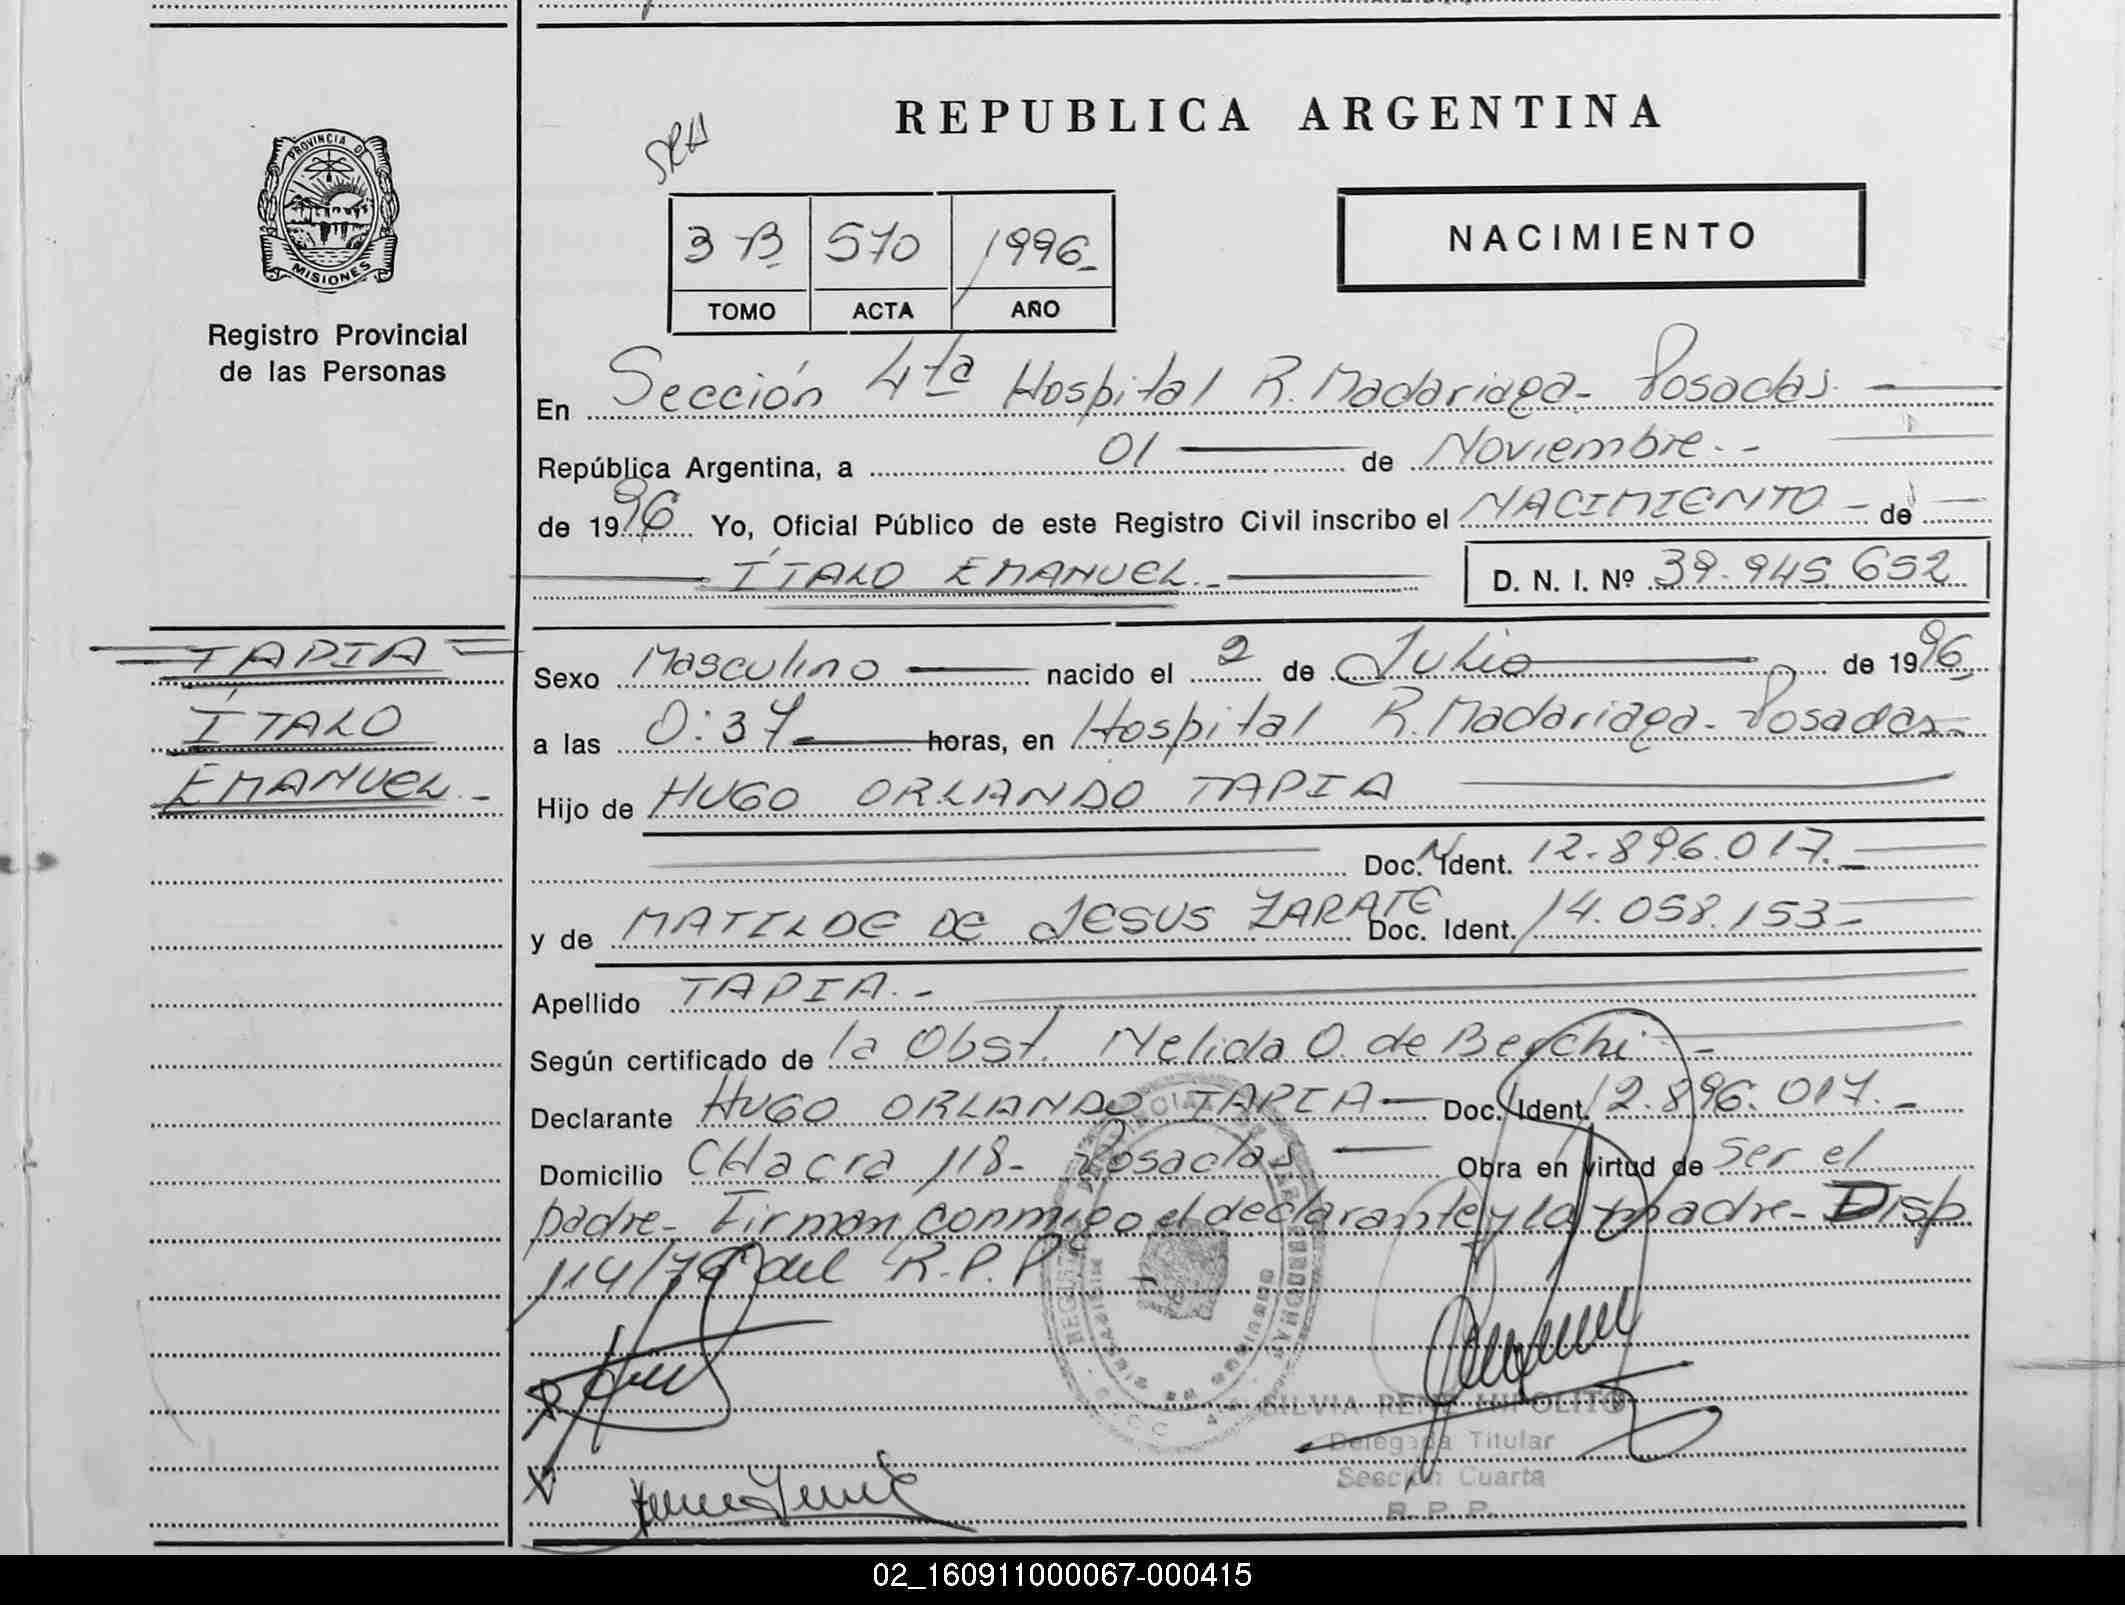 REPUBLICA ARGENTINA
PROVINCIA DE
MISIONES
Registro Provincial
de las Personas
3 B 570 1996
TOMO ACTA AÑO
NACIMIENTO
En Sección 4ta Hospital R. Madariaga - Posadas.
República Argentina, a 01 de Noviembre.-
de 1996 Yo, Oficial Público de este Registro Civil inscribo el NACIMIENTO - de
ÍTALO EMANUEL.- D. N. I. Nº 39.945.652
TAPIA
ÍTALO
EMANUEL.-
Sexo Masculino nacido el 2 de Julio de 1996
a las 0:37 horas, en Hospital R. Madariaga - Posadas.
Hijo de HUGO ORLANDO TAPIA
Doc. N Ident. 12.896.017.-
y de MATILDE DE JESUS ZARATE Doc. Ident. 14.058.153-
Apellido TAPIA.-
Según certificado de la Obst. Nelida O. de
Declarante HUGO ORLANDO TAPIA Doc. Ident. 12.896.017.-
Domicilio CHacra 118- Posadas Obra en virtud de ser el
padre- Firman conmigo el declarante y la madre- Disp
114/76 del R.P.P.
SILVIA RENE HIPOLITO
Delegada Titular
Sección Cuarta
R. P. P.
02_160911000067-000415